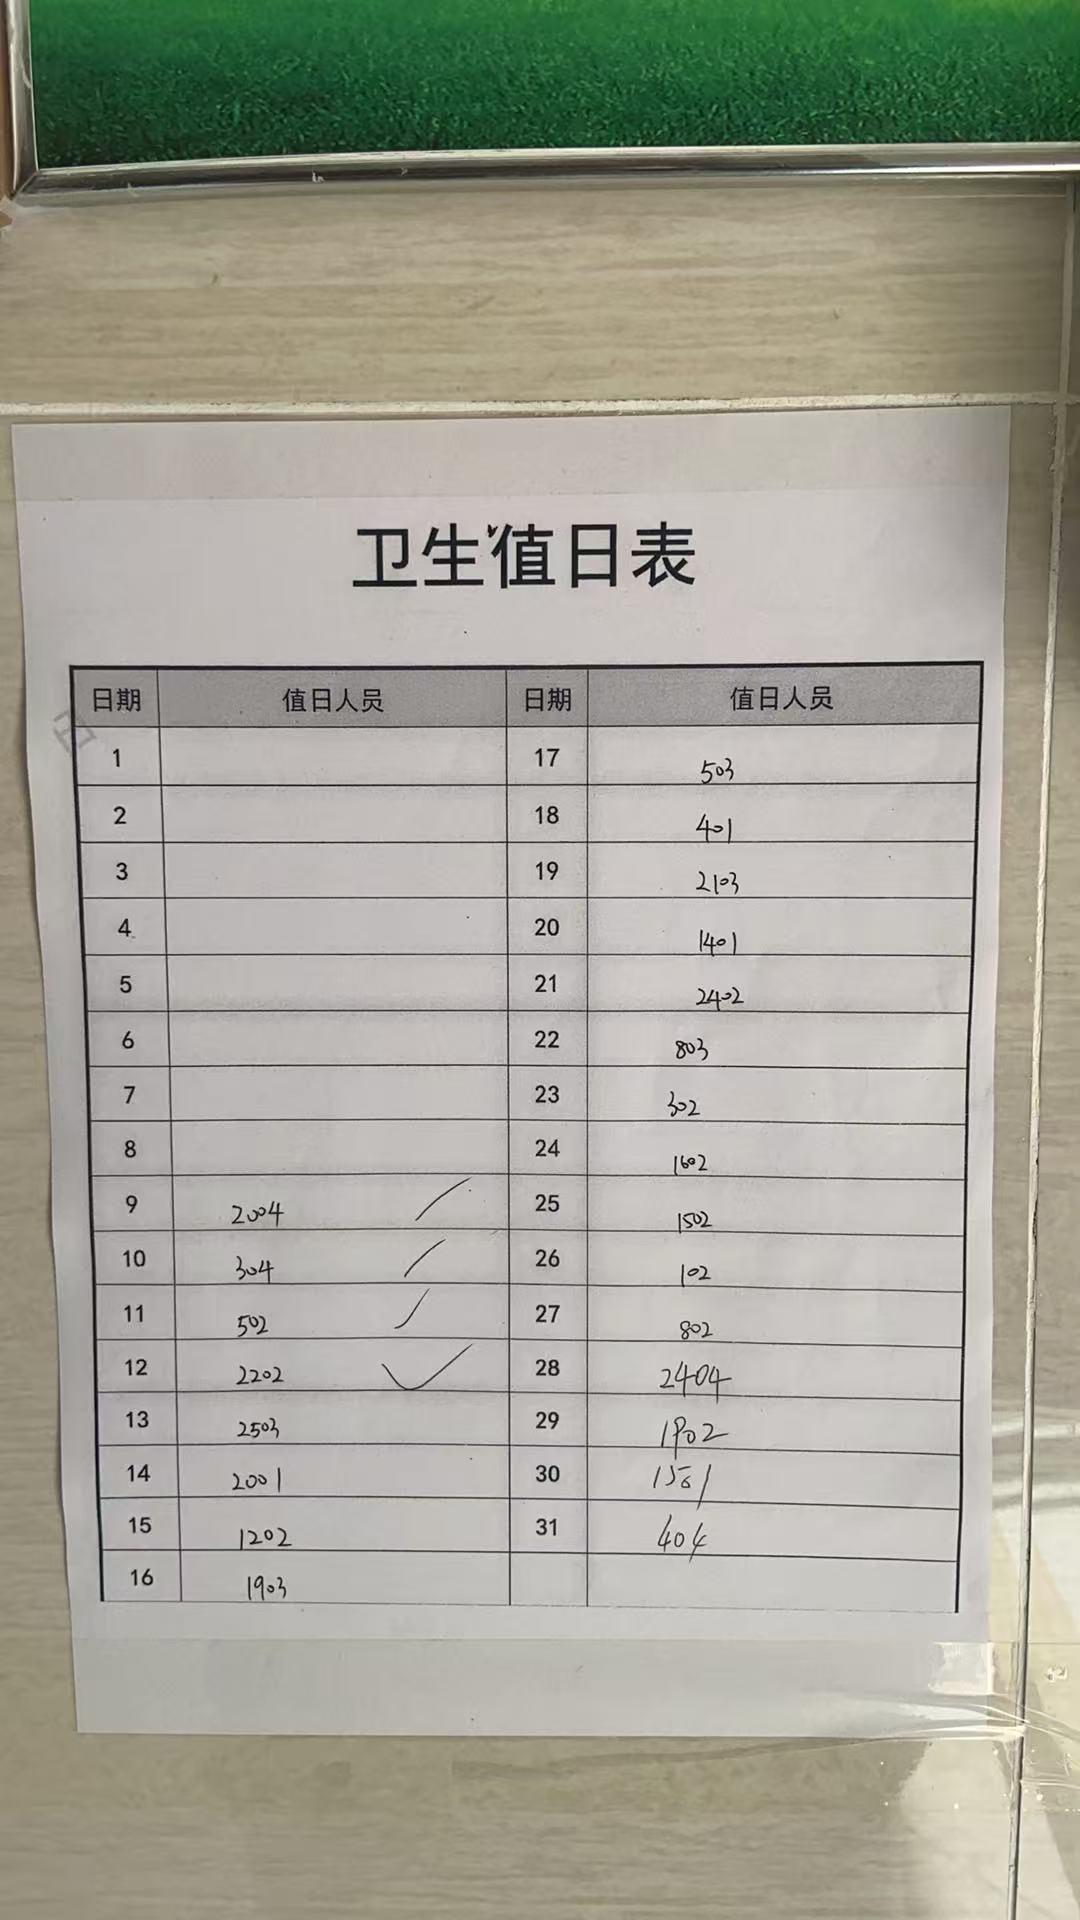 卫生值日表
日期 值日人员 日期 值日人员
1 17 503
2 18 401
3 19 2103
4 20 1401
5 21 2402
6 22 803
7 23 302
8 24 1602
9 2004 25 1502
10 304 26 102
11 502 27 802
12 2202 ✓ 28 2404
13 2503 29 1902
14 2001 30 1501
15 1202 31 404
16 1903